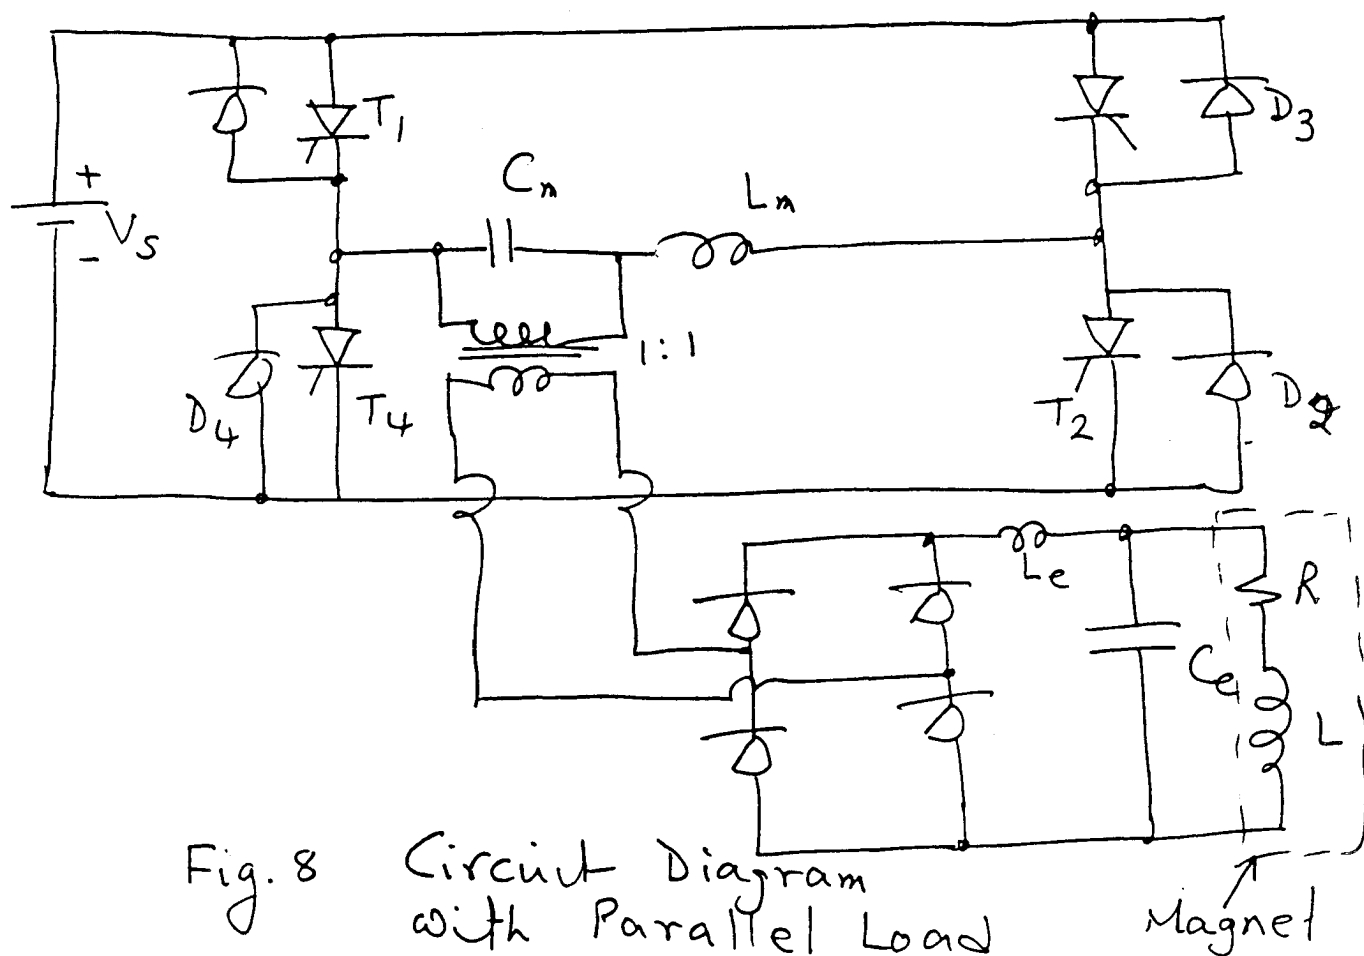 T1
D3
+
Vs
-
Cn
Lm
1:1
D4
T4
T2
D2
Le
R
Ce
L
Fig. 8 Circuit Diagram
with Parallel Load
Magnet